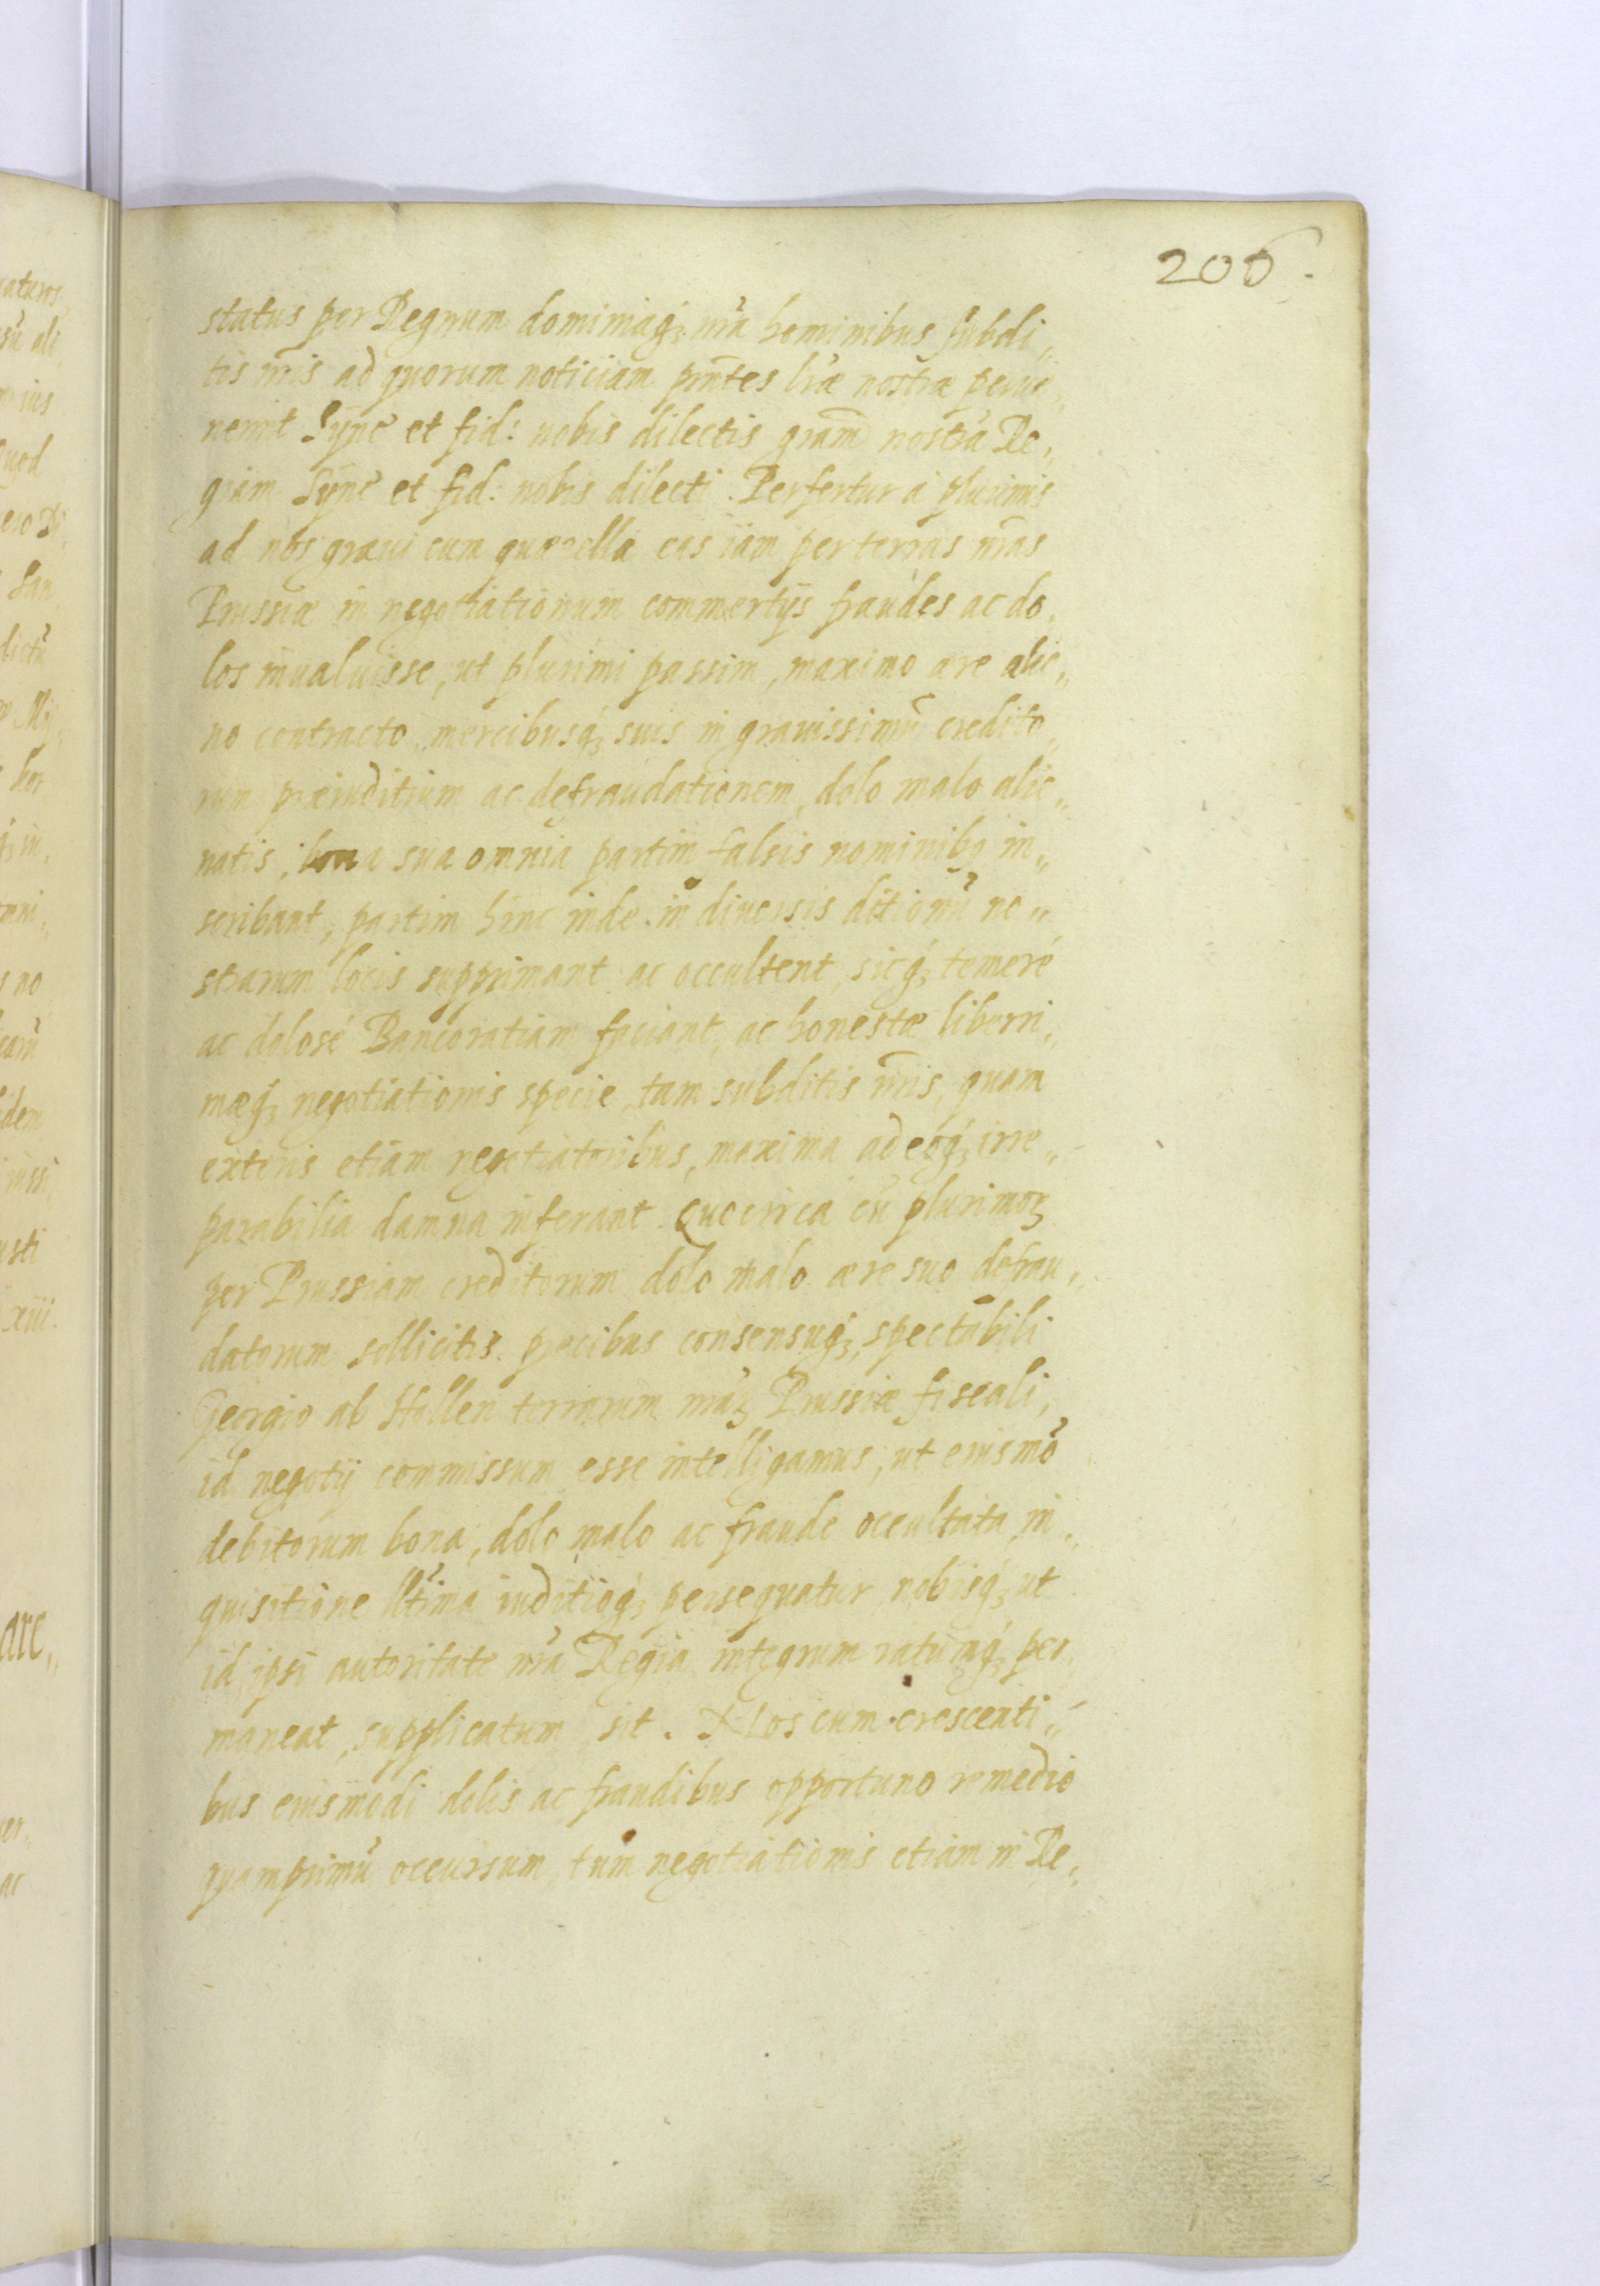 206.
status per Regnum dominiaq₃ nr̃a hominibus subdi„
tis nr̃is ad quorum noticiam pñtes lr̃æ nostræ perue„
nerint Synè et fid: nobis dilectis gratm̃ nostrã Re„
giam Synè et fid: nobis dilecti. Perfertur à plurimis
ad nos graui cum quærella eas iam per terras nr̃as
Prussiæ in negotiationum commertijs fraudes ac do„
los inualuisse, ut plurimi passim, maximo ære alie„
no contracto mercibusq₃ suis in grauissimũ credito„
rum præiuditium ac defraudationem, dolo malo alie„
natis, bona sua omnia partim falsis nominibq in„
scribant, partim hinc inde in diuersis ditionũ no„
strarum locis supprimant ac occultent, sicq₃ temerè
ac dolosè Bancoratiam faciant, ac honestæ liberri„
mæq₃ negotiationis specie, tam subditis nr̃is, quam
exteris etiam negotiatoribus, maxima adeóq₃ irre„
parabilia damna inferant. Quocirca cũ plurimoꝝ
per Prussiam creditorum dolo malo ære suo defrau„
datorum sollicitis precibus consensuq₃, spectabili
Georgio ab Hollen terrarum nr̃aꝝ Prussiæ fiscali,
id negotij commissum esse intelligamus, ut eiusmõ
debitorum bona, dolo malo ac fraude occultata, in„
quisitione ll̃tima iuditioq₃ persequatur nobisq₃ ut
id ipsi autoritate nr̃a Regia integrum ratumq₃ per
maneat, supplicatum sit. Nos cum crescenti„
bus eiusmodi dolis ac fraudibus opportuno remedio
quamprimũ occursum, tum negotiationis etiam in Re„